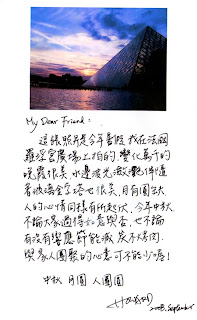 My Dear Friend:
這張照片是今年暑假 我在法國
羅浮宮廣場上拍的 變化萬千的
晚霞很美 水邊波光激灩伴隨
著玻璃金字塔也很美 月有圓缺
人的心情同樣有所起伏 今年中秋
不論大家過得如意與否 也不論
有沒有響應節能減炭不烤肉
與家人團聚的心意可不能少唷!
中秋 月圓 人團圓
2008. September